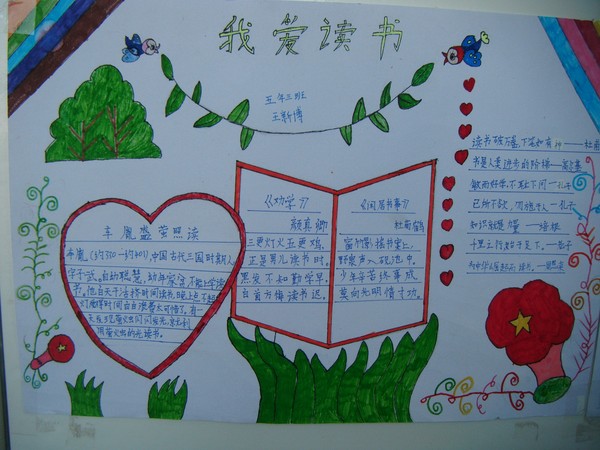 我爱读书
五年三班
王新博
车胤盛萤照读
车胤(约350—约401),中国古代三国时期人
字子武,自幼聪慧,幼年家贫不能上学读
书,他白天干活抽时间读书,晚上
《劝学》
颜真卿
三更灯火五更鸡,
正是男儿读书时。
黑发不知勤学早,
白首方悔读书迟。
《闲居书事》
杜荀鹤
窗竹影摇书案上,
野泉声入砚池中。
少年辛苦终事成,
莫向光明惰寸功。
读书破万卷,下笔如有神——杜甫
书是人类进步的阶梯——高尔基
敏而好学,不耻下问—孔子
己所不欲,勿施于人—孔子
知识就是力量——培根
千里之行始于足下。—老子